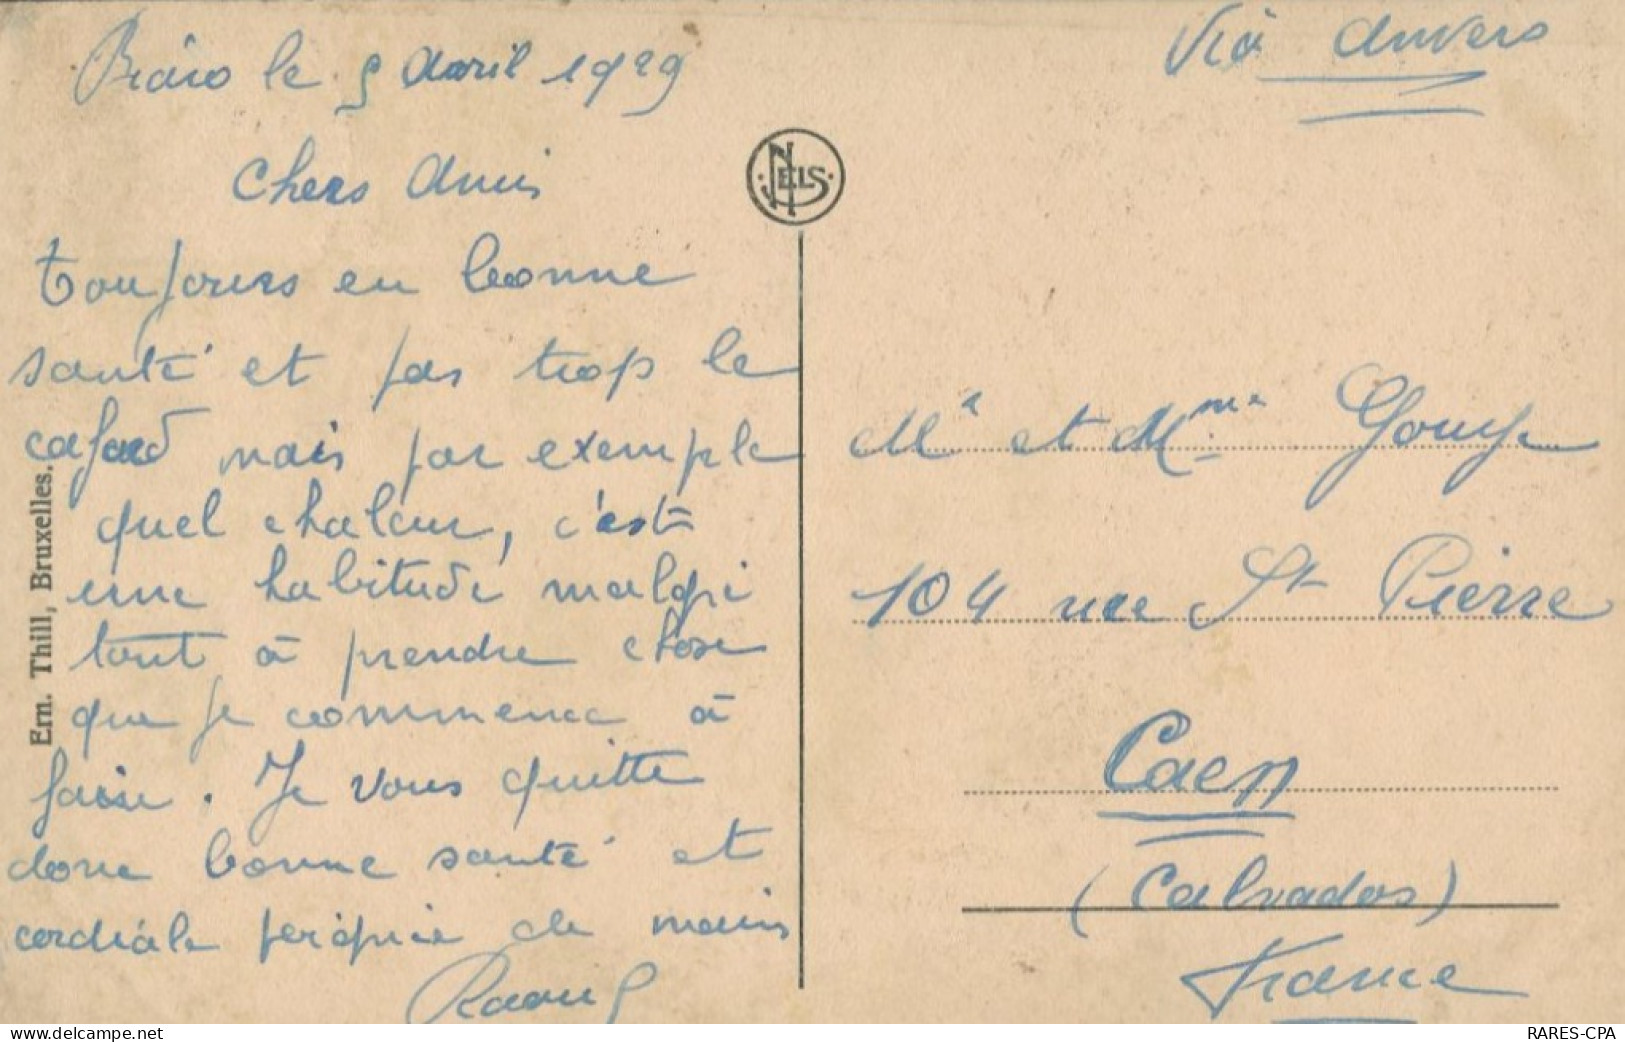 le 5 Avril 1929
Chers Amis
toujours en bonne
santé et pas trop le
cafard mais par exemple
quel chaleur, c'est
une habitude malgré
tout à prendre chose
que je commence à
faire. Je vous quitte
donc bonne santé et
cordiale poignée de mains
Raoul
Ern. Thill, Bruxelles.
NELS
Via Anvers
Mr et Mme Gouye
104 rue St Pierre
Caen
(Calvados)
France
RARES-CPA
www.delcampe.net